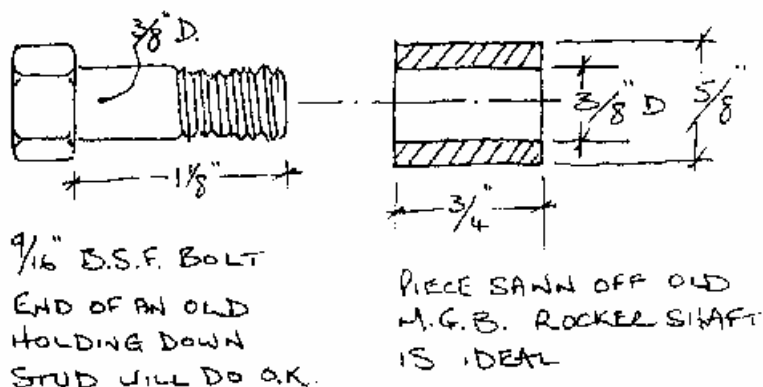 3/8" D.
1 1/8"
3/8" D
5/8"
3/4"
9/16" B.S.F. BOLT
END OF AN OLD
HOLDING DOWN
STUD WILL DO O.K.
PIECE SAWN OFF OLD
M.G.B. ROCKER SHAFT
IS IDEAL